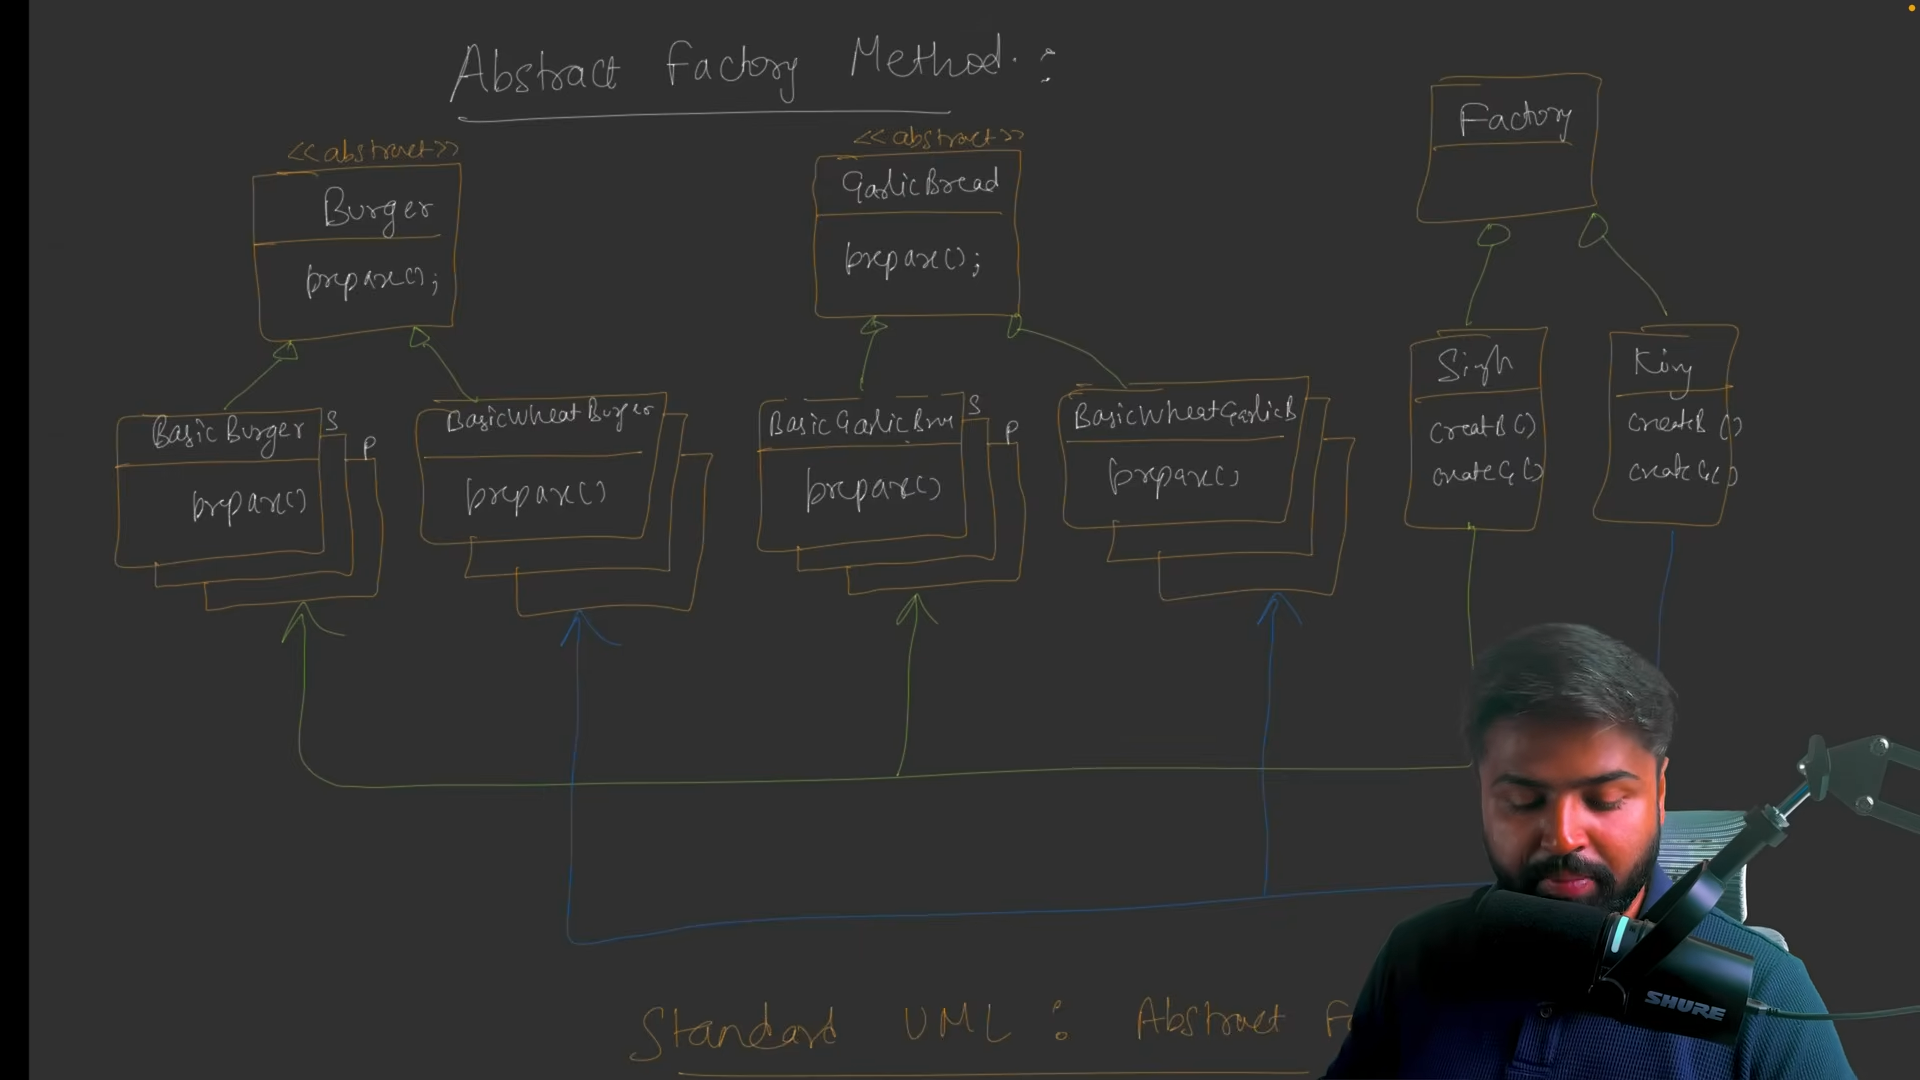 Abstract Factory Method :
<<abstract>>
Burger
prepare();
<<abstract>>
GarlicBread
prepare();
Factory
BasicBurger
S
P
prepare()
BasicWheatBurger
prepare()
BasicGarlicBre
S
P
prepare()
BasicWheatGarlicB
prepare()
Singh
creatB()
createG()
King
createB ()
createG()
Standard UML : Abstract Fa
SHURE